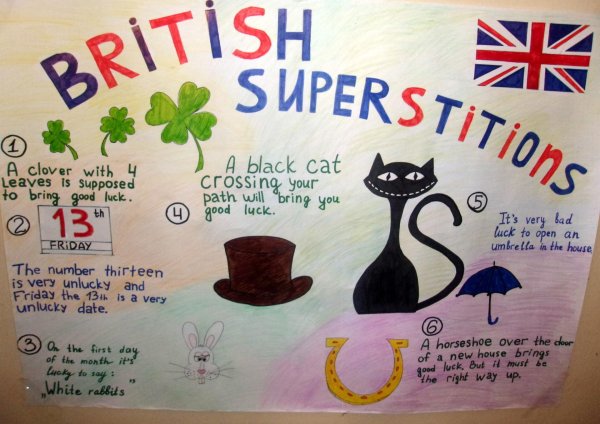 BRiTiSH
SUPERSTiTiOnS
1
A clover with 4
Leaves is supposed
to bring good luck.
2
13th
FRiDAY
The number thirteen
is very unlucky and
Friday the 13th is a very
unlucky date.
3
On the first day
of the month it's
lucky to say:
„White rabbits
4
A black cat
crossing your
path will bring you
good luck.
5
It's very bad
luck to open an
umbrella in the house.
6
A horseshoe over the door
of a new house brings
good luck. But it must be
the right way up.